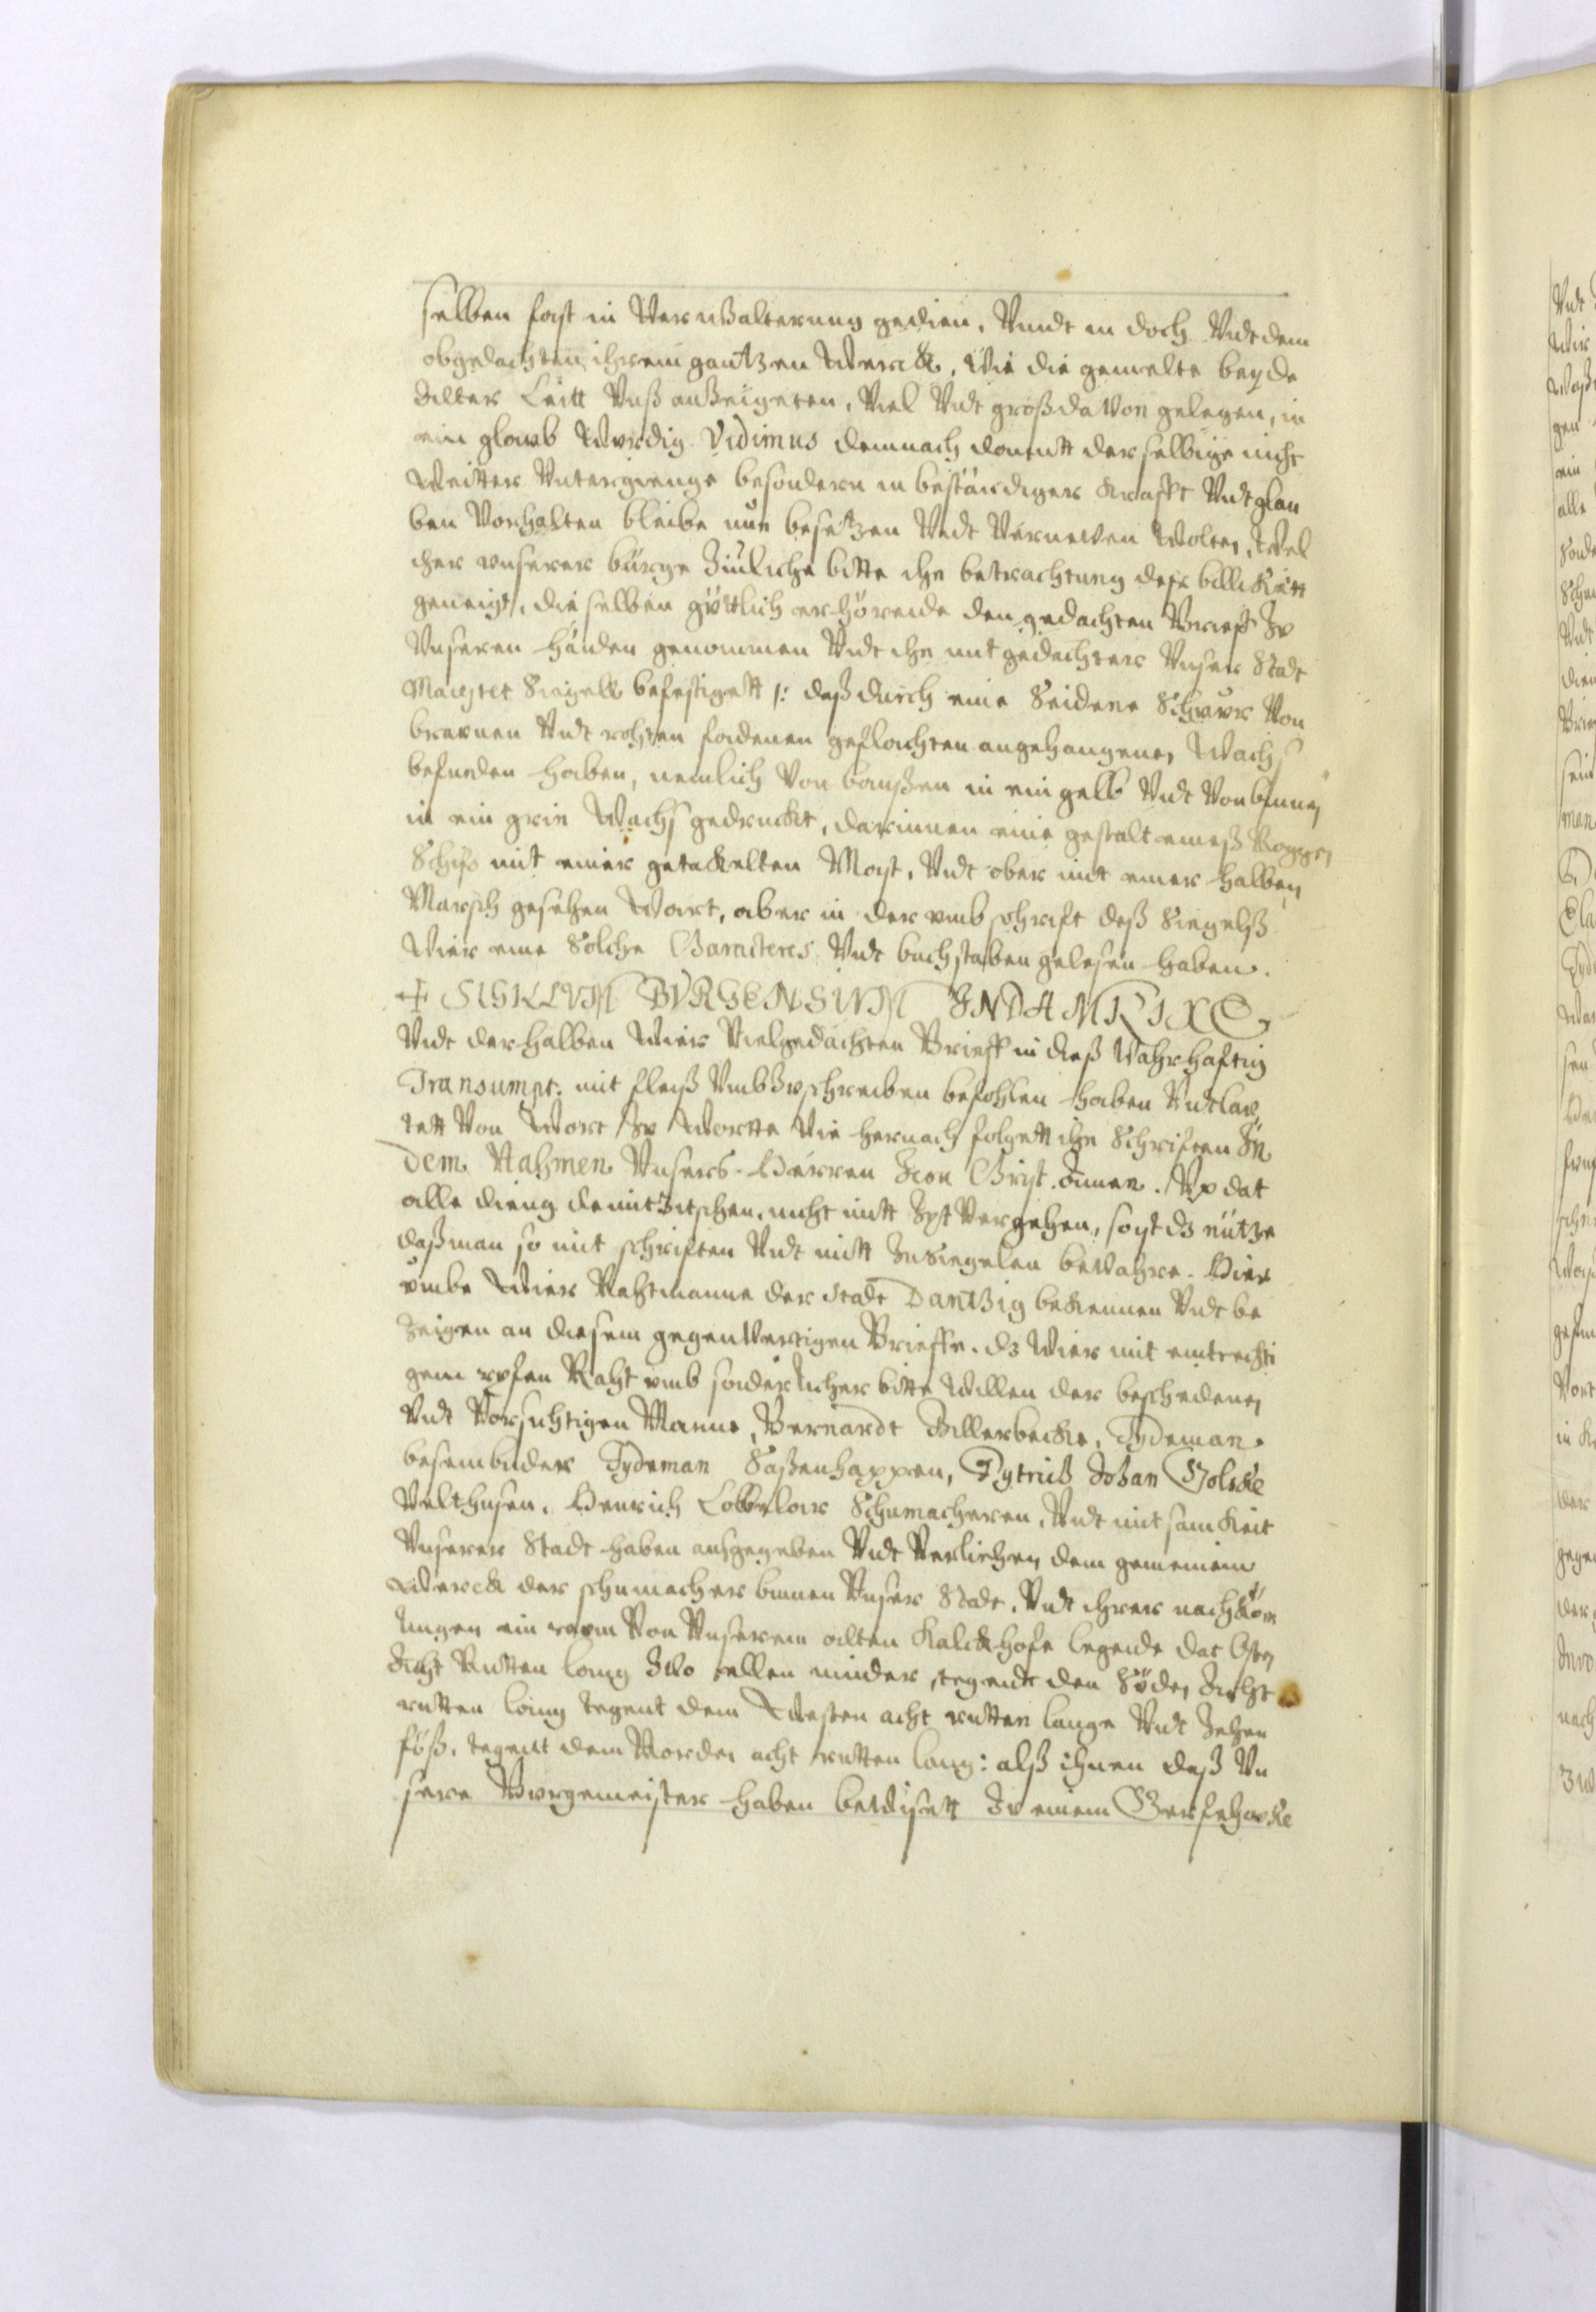 selben fast in Vernßalterung gedien, Vnndt in doch Vndt dem
obgedachten ihrem gantzen Werck, Wie die gemelte beyde
Alter Leitt Vnß anßeigeten, Viel Vndt groß da Von gelegen, in
ein glaub Wurdig Vidimus demnach domitt derselbige nicht
Weitter Vntergienge besondern in beständiger Krafft Vndt glau
ben Vorhalten bleibe nun besetzen Vndt Vernewen Wolten, Wel
cher vnserer bürge Zimliche bitte ihn betrachtung der billikeitt
geneigt, die selben güttlich erhörende den gedachten Brieff Zu
Vnseren Händen genommen Vndt ihn mit gedachter Vnser Stadt
Majstet Siegell befestigett /: daß durch eine Seidene Schnur Von
braunen Vndt rohten fadenen geflochten angehangenen Wachs
befunden haben, nemlich Von baußen in ein gelb Vndt Von binnen
in ein grin Wachs gedruckt, darinnen eine gestalt eineß Roggen
Schifs mit einer getackelten Mast, Vndt ober mit einer halben
Marsch gesehen Wart, aber in der vmbschrift deß Siegelß
Wier eine Solche Caracteres Vndt buchstaben gelesen haben.
+ SIGILLVM BVRGENSIVM IN DAMRIXE
Vndt derhalben Wier Vielgedachten Brieff in dieß Wahrhaftig
Transumpt: mit fleiß Vmb Zuschreiben befohlen haben Vndt lau
tett Von Wort Zu Wortte Wie hernach folgett ihn Schriften In
dem Nahmen Vnsers Herren Christ. Amen. Vp dat
alle dieng de mit Zitschen, nicht mitt Zyt Vergehen, so ist dz nütze
daß man so mit schriften Vndt mitt Insiegelen bewahre. Hier
vmbe Wier Rahtmanne der Stadt Dantzig bekennen Vndt be
Zeigen an diesem gegenwertigen Brieffe. dz Wier mit eintrechti
gem ryfen Raht vmb sonderlicher bitte Willen der bescheidenen
Vndt Vorsichtigen Manne, Bernardt Billerbecke, Tydeman
besembinder Tydeman Saßenhappen, Dytrich Johan Golske
Velthusen. Henrich Lobbelow Schumacheren, Vndt mit samkeit
Vnserer Stadt haben ausgegeben Vndt Verliehen dem gemeinen
Werck der schumacher binnen Vnser Stadt, Vndt ihrer nachkom
lingen ein raum Von Vnserem alten Kalckhofe legende dat Osten
Acht Rutten lang Zwo ellen minder, tegendt den Süden Acht
rutten lang tegent dem Westen acht rutten lange Vndt Zehen
föß, tegent dem Norden acht rutten lang: alß ihnen daß Vn
sere Burgemeister haben bewisett Zu einem Gerfehowe